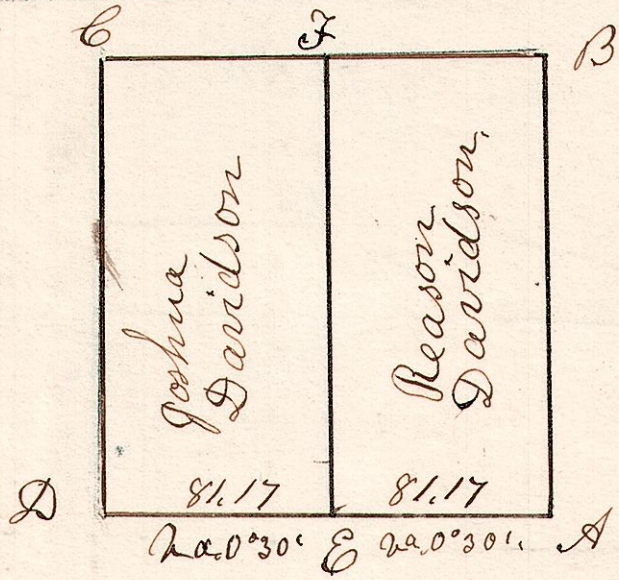 C F B
Joshua
Davidson
Reason
Davidson.
81.17 81.17
D E A
va. 0°30' va. 0°30'.